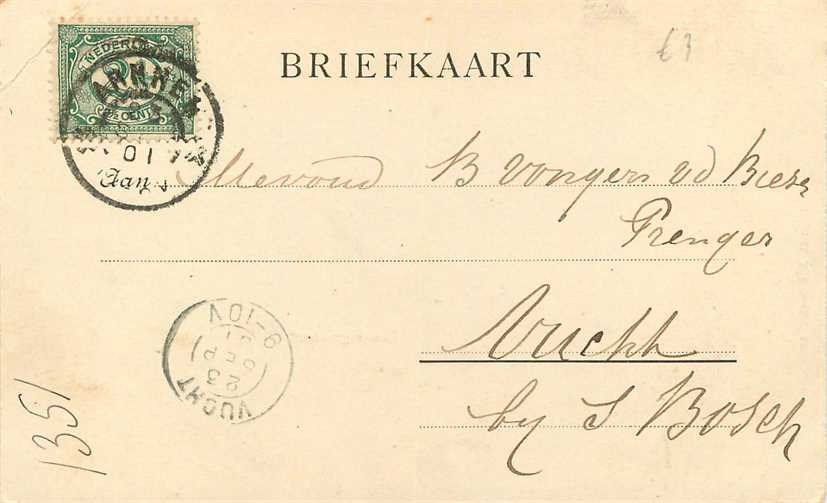 NEDERLAND
2½ CENT
ARNHEM
01
Aan
BRIEFKAART
£3
Mevoud B Vongers vd Biesen
Prenger
Vucht
by S Bosch
VUCHT
23 SEP 01
9-10V
1351